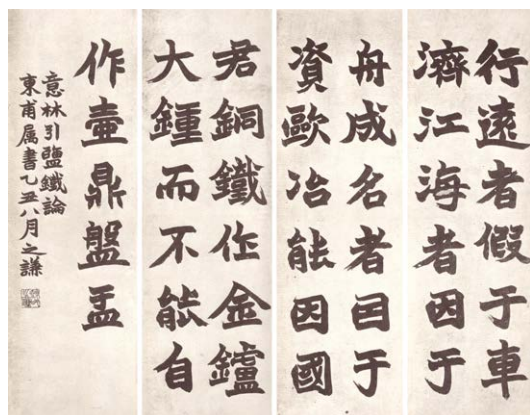 行遠者假于車
濟江海者因于
舟成名者囙于
資歐冶能因國
君銅鐵作金鑪
大鍾而不能自
作壺鼎盤盂
意林引鹽鐵論
東甫属書乙丑八月之謙